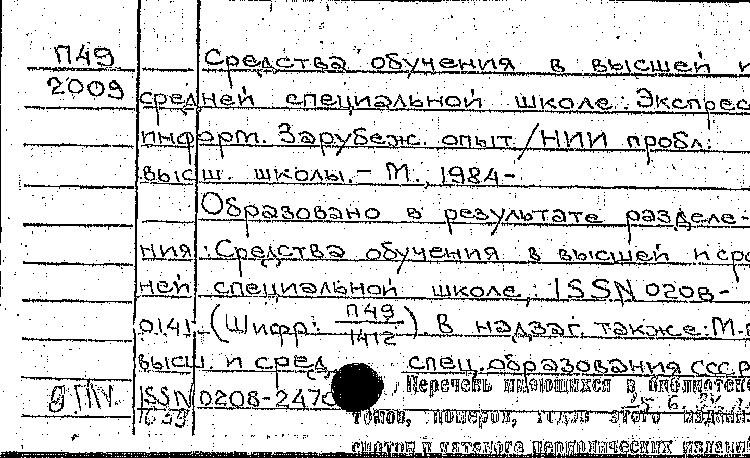 П49 Средства обучения в высшей и
2009 средней специальной школе: Экспрес
информ. Зарубеж. опыт /НИИ пробл.
высш. школы.- М., 1984-
Образовано в результате разделе-
ния: Средства обучения в высшей и сре
ней специальной школе; ISSN 0208-
0141.-(Шифр: П49/1412). В надзаг. также: М-в
высш. и сред. спец. образования СССР
ISSN 0208-2470 Перечень имеющихся в библиотеке
томов, номеров, годов этого издания
смотри в каталоге периодических изданий